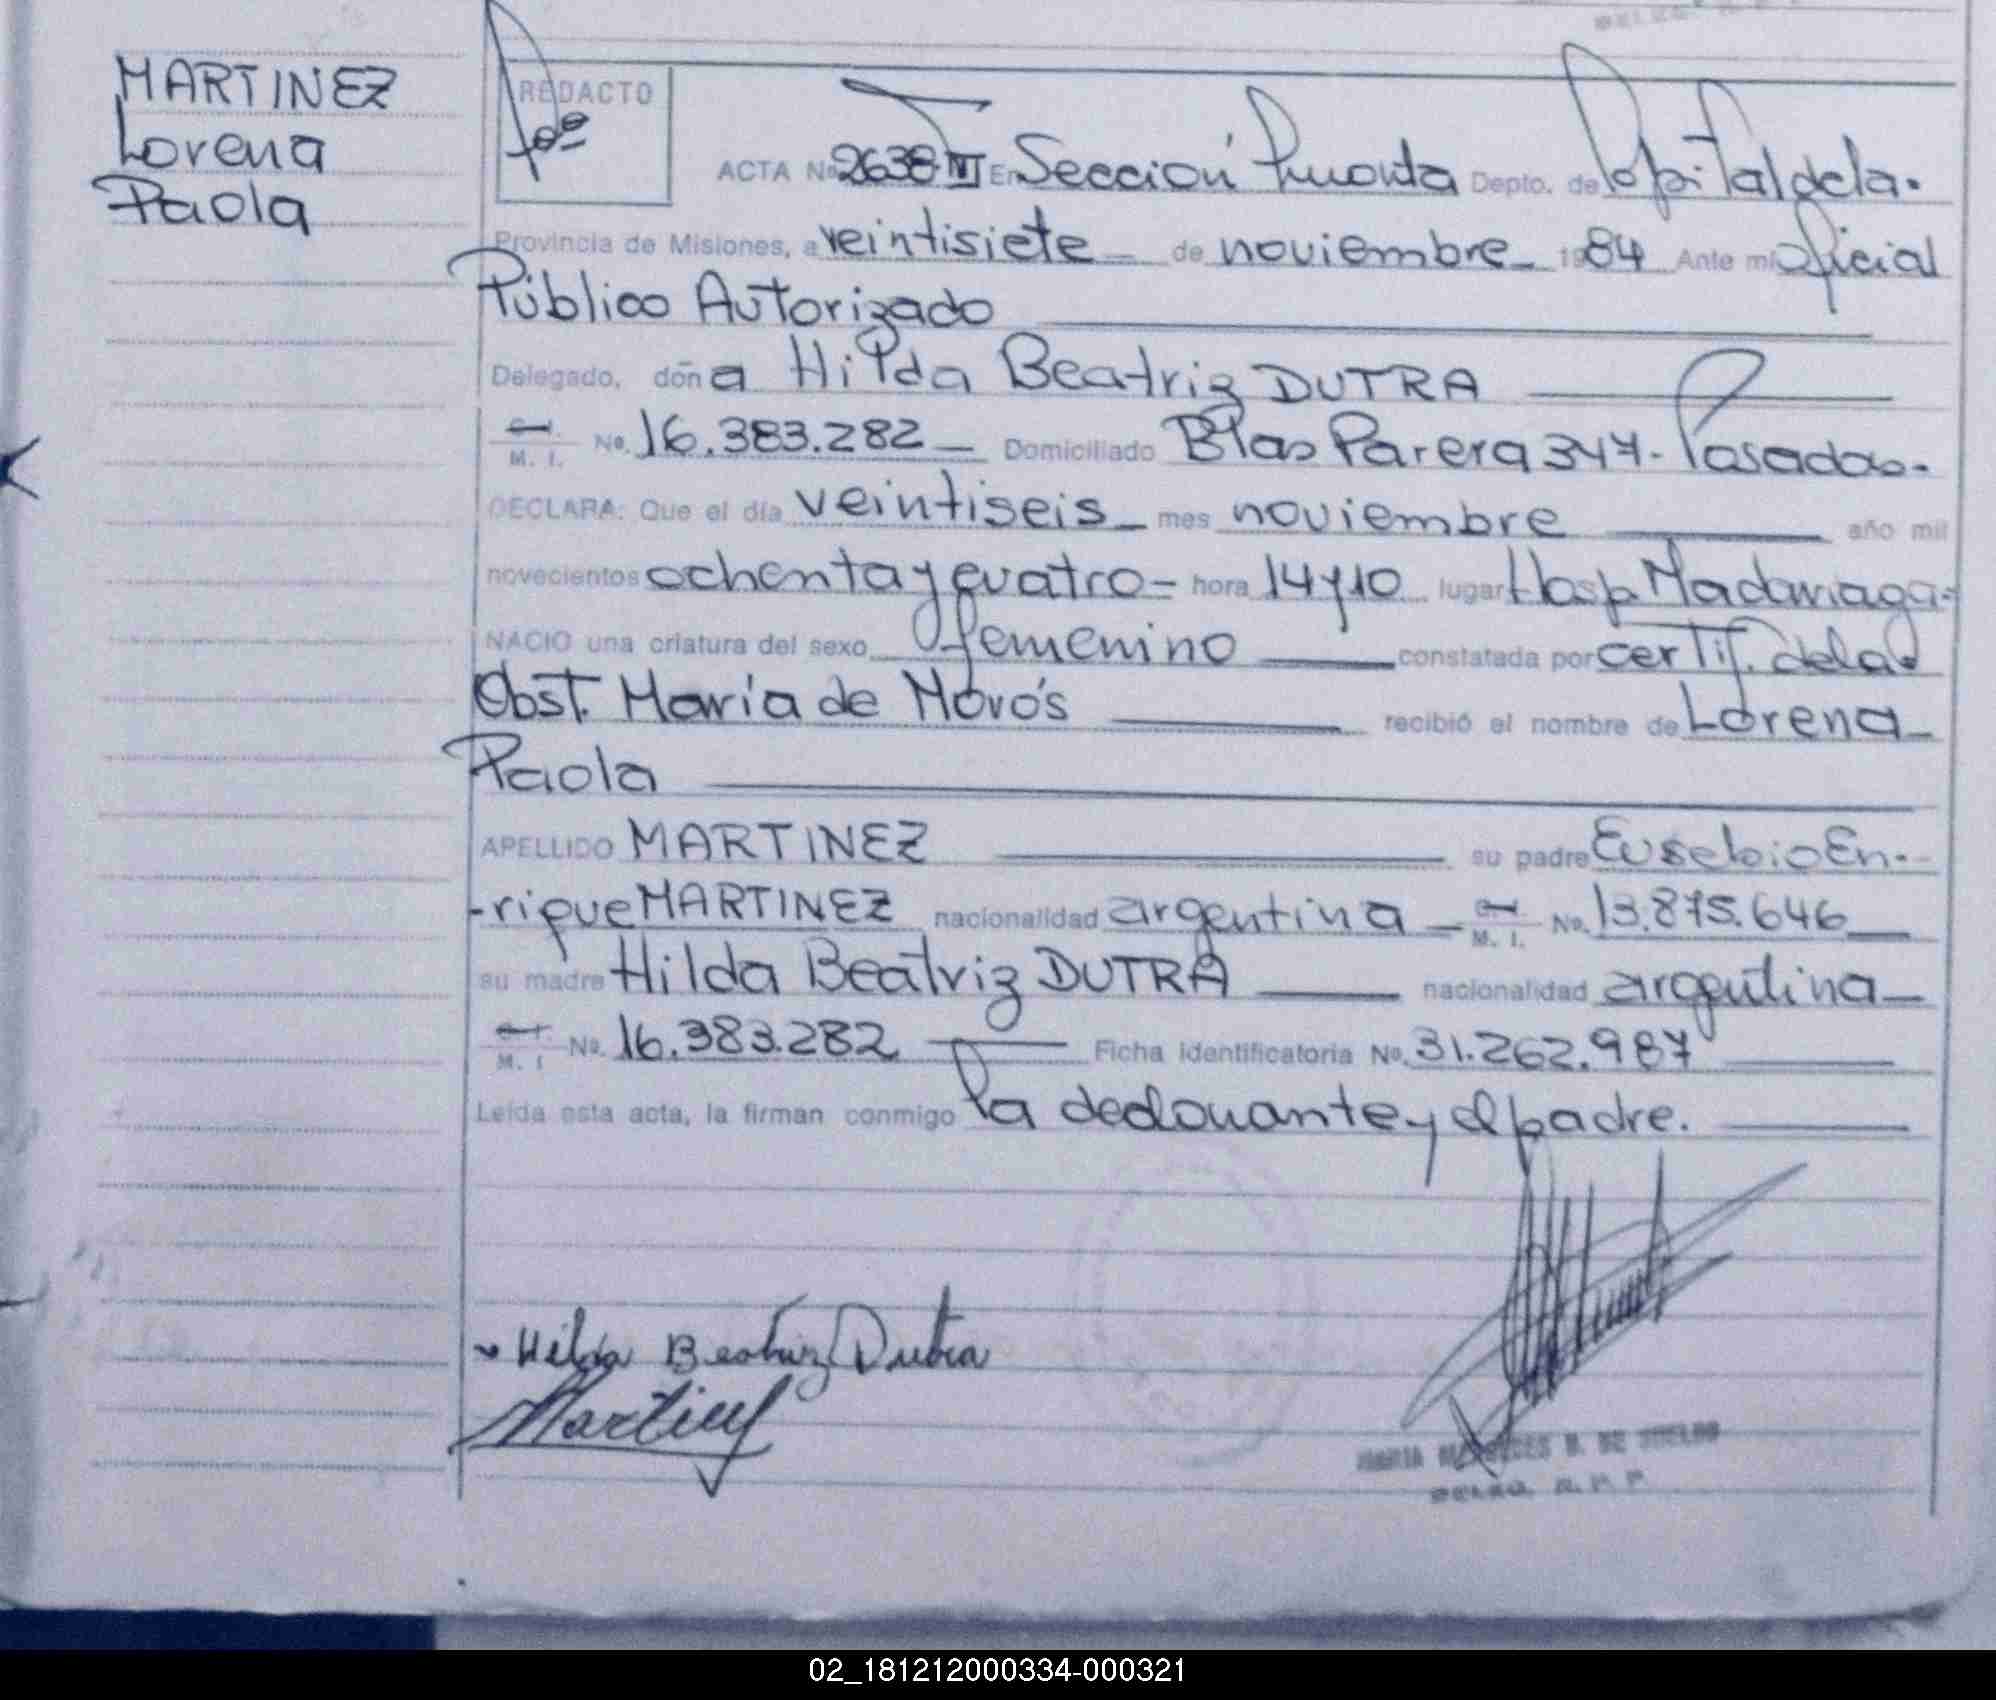 MARTINEZ
Lorena
Paola
REDACTO
ACTA No 2638 III En Sección Puerta Depto. de Capital de la.
Provincia de Misiones, a veintisiete de noviembre 1984 Ante mi Oficial
Público Autorizado
Delegado, doña Hilda Beatriz DUTRA
C.I. M. I. No. 16.383.282 Domiciliado Blas Parera 347. Posadas.
DECLARA: Que el día veintiseis mes noviembre año mil
novecientos ochenta y cuatro= hora 14y10 lugar Hosp Madariaga.
NACIO una criatura del sexo femenino constatada por certif. de la
Obst. María de recibió el nombre de Lorena
Paola
APELLIDO MARTINEZ su padre Eusebio En-
-rique MARTINEZ nacionalidad argentina C.I. M. I. No. 13.875.646
su madre Hilda Beatriz DUTRA nacionalidad argentina
C.I. M. I No. 16.383.282 Ficha identificatoria No. 31.262.987
Leída esta acta, la firman conmigo la declarante y el padre.
Hilda Beatriz Dutra
Martinez
MARIA MERCEDES B. DE
DELEG. R. P. P.
02_181212000334-000321